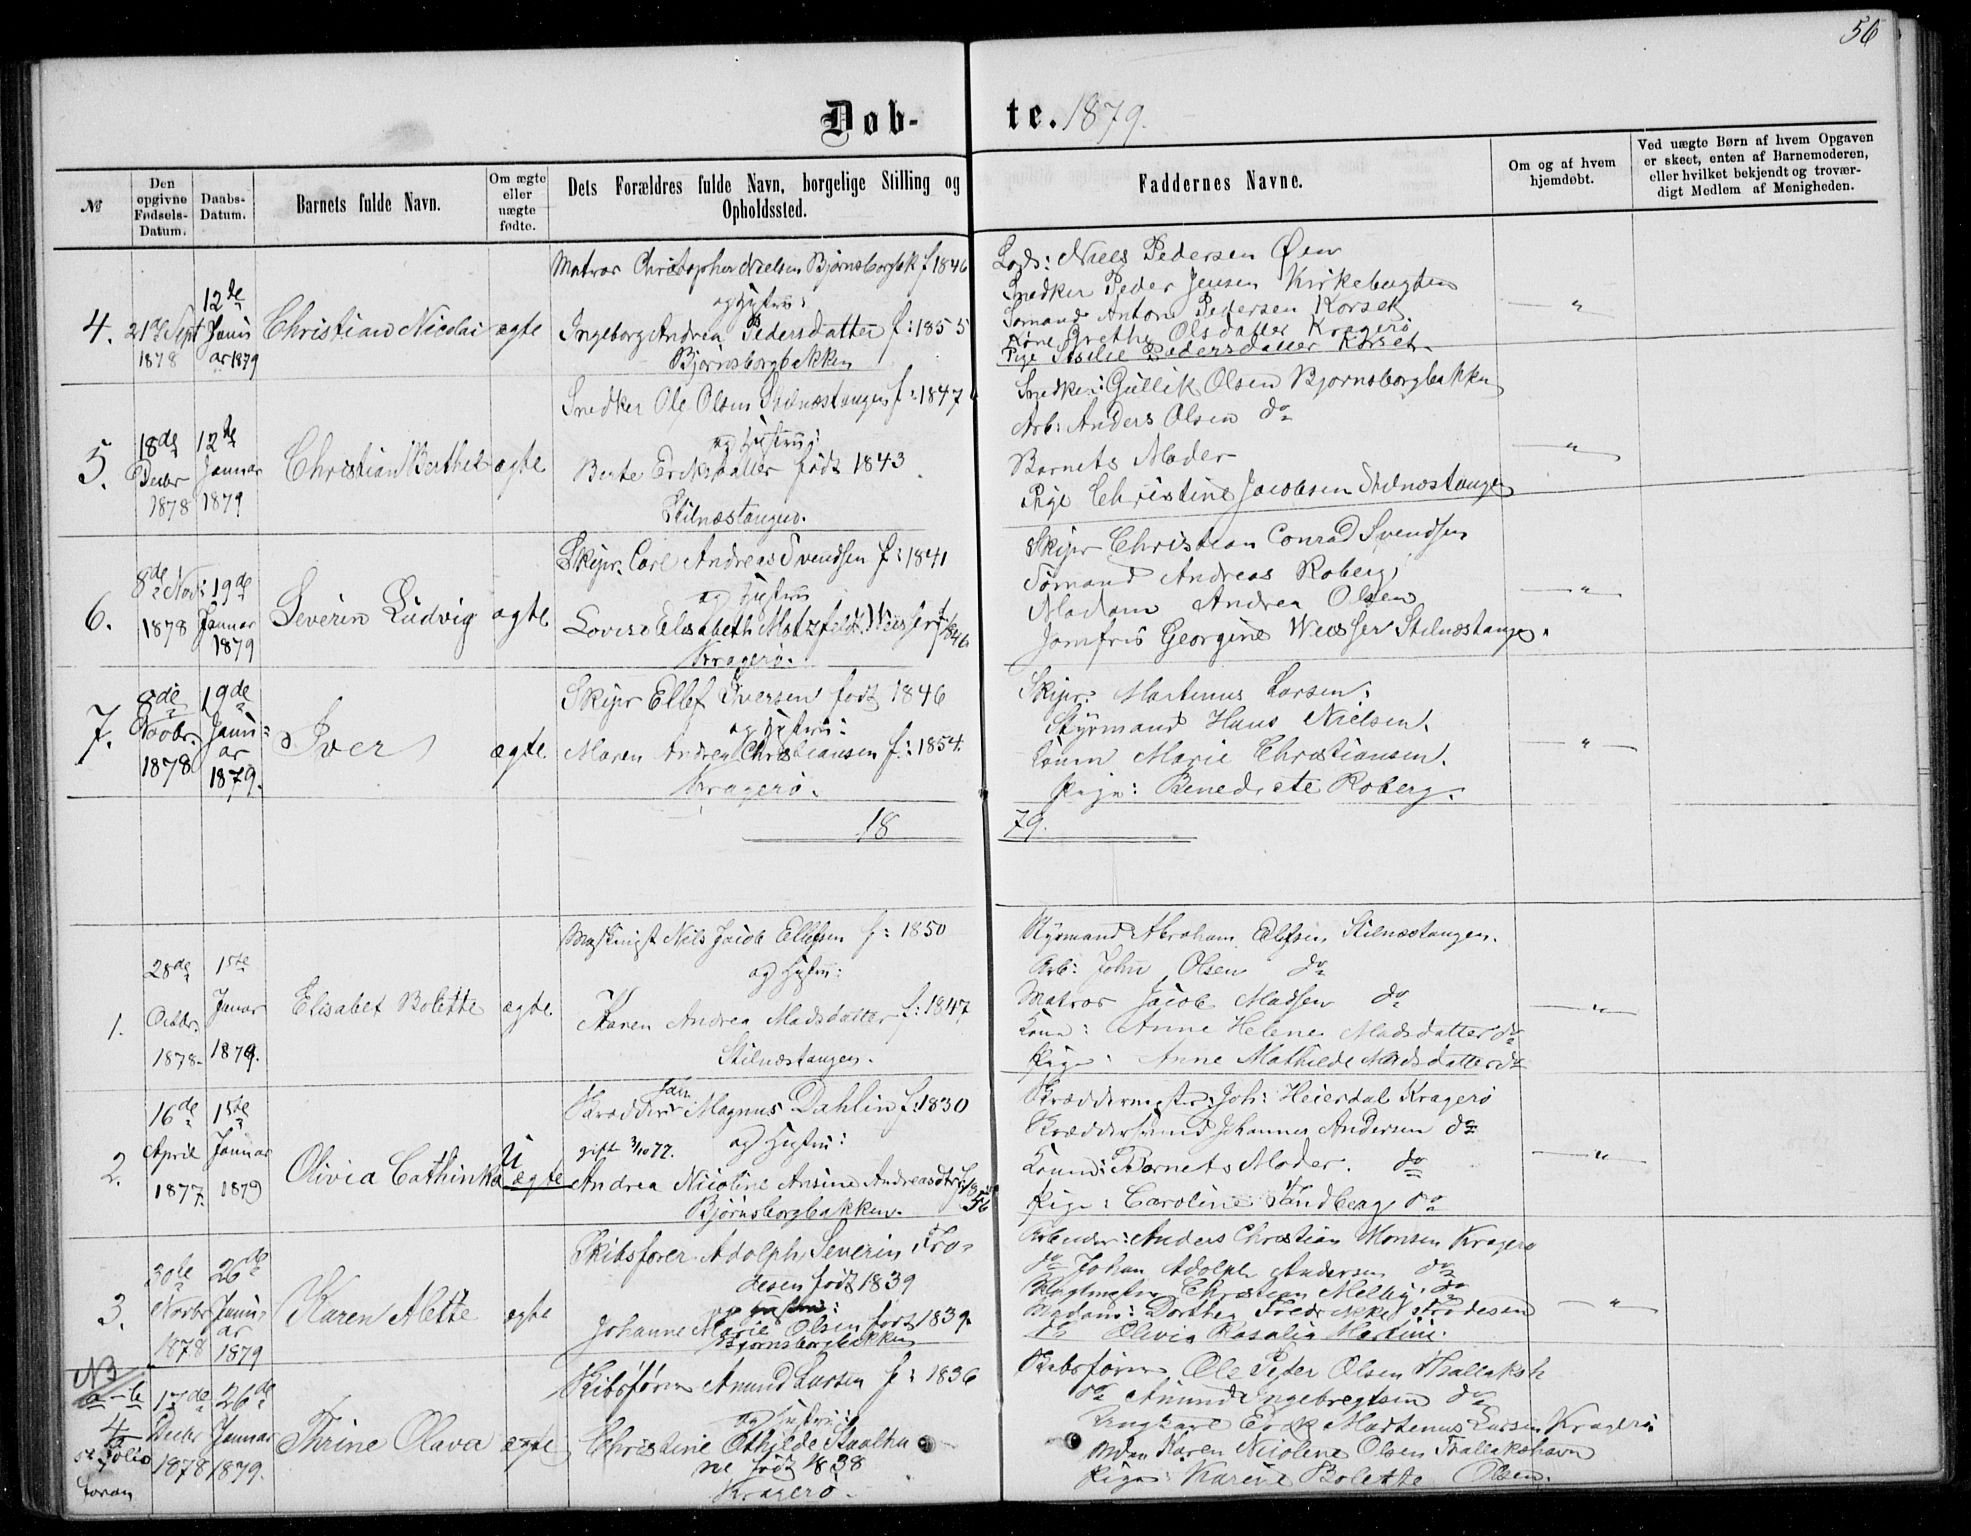 56
Døb-
te. 1879.
№
Den opgivne Fødsels-Datum.
Daabs-Datum.
Barnets fulde Navn.
Om ægte eller uægte fødte.
Dets Forældres fulde Navn, borgelige Stilling og Opholdssted.
Faddernes Navne.
Om og af hvem hjemdøbt.
Ved uægte Børn af hvem Opgaven er skeet, enten af Barnemoderen, eller hvilket bekjendt og troværdigt Medlem af Menigheden.
4.
21de Sept 1878
12te Januar 1879
Christian Nicolai
ægte
Matros Christopher Nielsen Bjørnsborgbk f 1846
og Hustru:
Ingeborg Andrea Pedersdatter f: 1855
Bjørnsborgbakken
Lods: Niels Pedersen Øen
Snedker Peder Jensen Kirkebugten
Sømand Anton Pedersen Korset
Kone Grethe Olsdatter Kragerø
Pige Pedersdatter Korset
"
5.
18de Decbr 1878
12te Januar 1879
Christian Berthel
ægte
Snedker Ole Olsen Stilnæstangen f: 1847
og Hustru:
Berte Eriksdatter født 1843
Stilnæstangen.
Snedker: Gullik Olsen Bjørnsborgbakken
Arb: Anders Olsen do
Barnets Moder
Pige Christine Jacobsen Stilnæstangen
"
6.
8de Nov: 1878
19de Januar 1879
Severin Ludvig
ægte
Skipr. Carl Andreas Svendsen f: 1841
og Hustru
Lovise Elisabeth Matzfeldt Weisser f 1846
Kragerø.
Skipr Christian Conrad Svendsen
Sømand Andreas Roberg,
Madam Andrea Olsen
Jomfru Georgine Weisser Stilnæstangen
"
7.
8de Novbr. 1878
19de Januar 1879.
Iver
ægte
Skipr Ellef Iversen født 1846
og Hustru:
Maren Andrea Christiansen f: 1854.
Kragerø.
Skipr. Martinus Larsen:
Styrmand Hans Nielsen.
Konen Marie Christiansen.
Pige: Benedicte Roberg.
"
18
79.
1.
28de Octbr. 1878.
1ste Januar 1879.
Elisabet Bolette
ægte
Nils Jacob Ellefsen f: 1850
og Hustru:
Karen Andrea Madsdatter f: 1847
Stilnæstangen.
Styrmand Abraham Ellefsen Stilnæstangen.
Arb: John Olsen do
Matros Jacob Madsen do
Kone: Anne Helene Madsdatter do
Pige: Anne Mathilde Madsdatter do
"
2.
16de April 1877.
1ste Januar 1879
Olivia Cathinka
U ægte
Skrædder Magnus Dahlin f: 1830
gift 3/10 77. og Hustru:
Andrea Nicoline Ansine Andreasdtr f 1856
Bjørnsborgbakken.
Skræddermester: Joh: Heierdal Kragerø
Skræddersvend Johannes Andersen do
Konen: Barnets Moder. do
Pige: Caroline Sandberg do
"
3.
30te Novbr 1878
26de Januar 1879
Karen Alette
ægte
Skibsfører Adolph Severin Fro-
desen født 1839
og Hustru:
Johanne Marie Olsen født 1839.
Bjørnsborgbakken
Arbeider: Anders Christian Monsen Kragerø
do Johan Adolph Andersen do
Christian Melby, do
Madam: Dorthea Fredrikke Frodesen
do Olivia Rosalia Martini.
"
NB
a-b
4
se Folio foran
17de Decbr 1878
26de Januar 1879.
Thrine Olava
ægte
Skibsfører Amund Larsen f: 1836
og Hustru:
Christine Othilde Staaltha
ne født 1838
Kragerø.
Skibsfører Ole Peter Olsen Thallaksh
do Amund Ingebregtsen do
Martenus Larsen Kragerø
Mdm Karen Nicolene Olsen Thallakshavn
Pige: Karine Bolette Olsen.